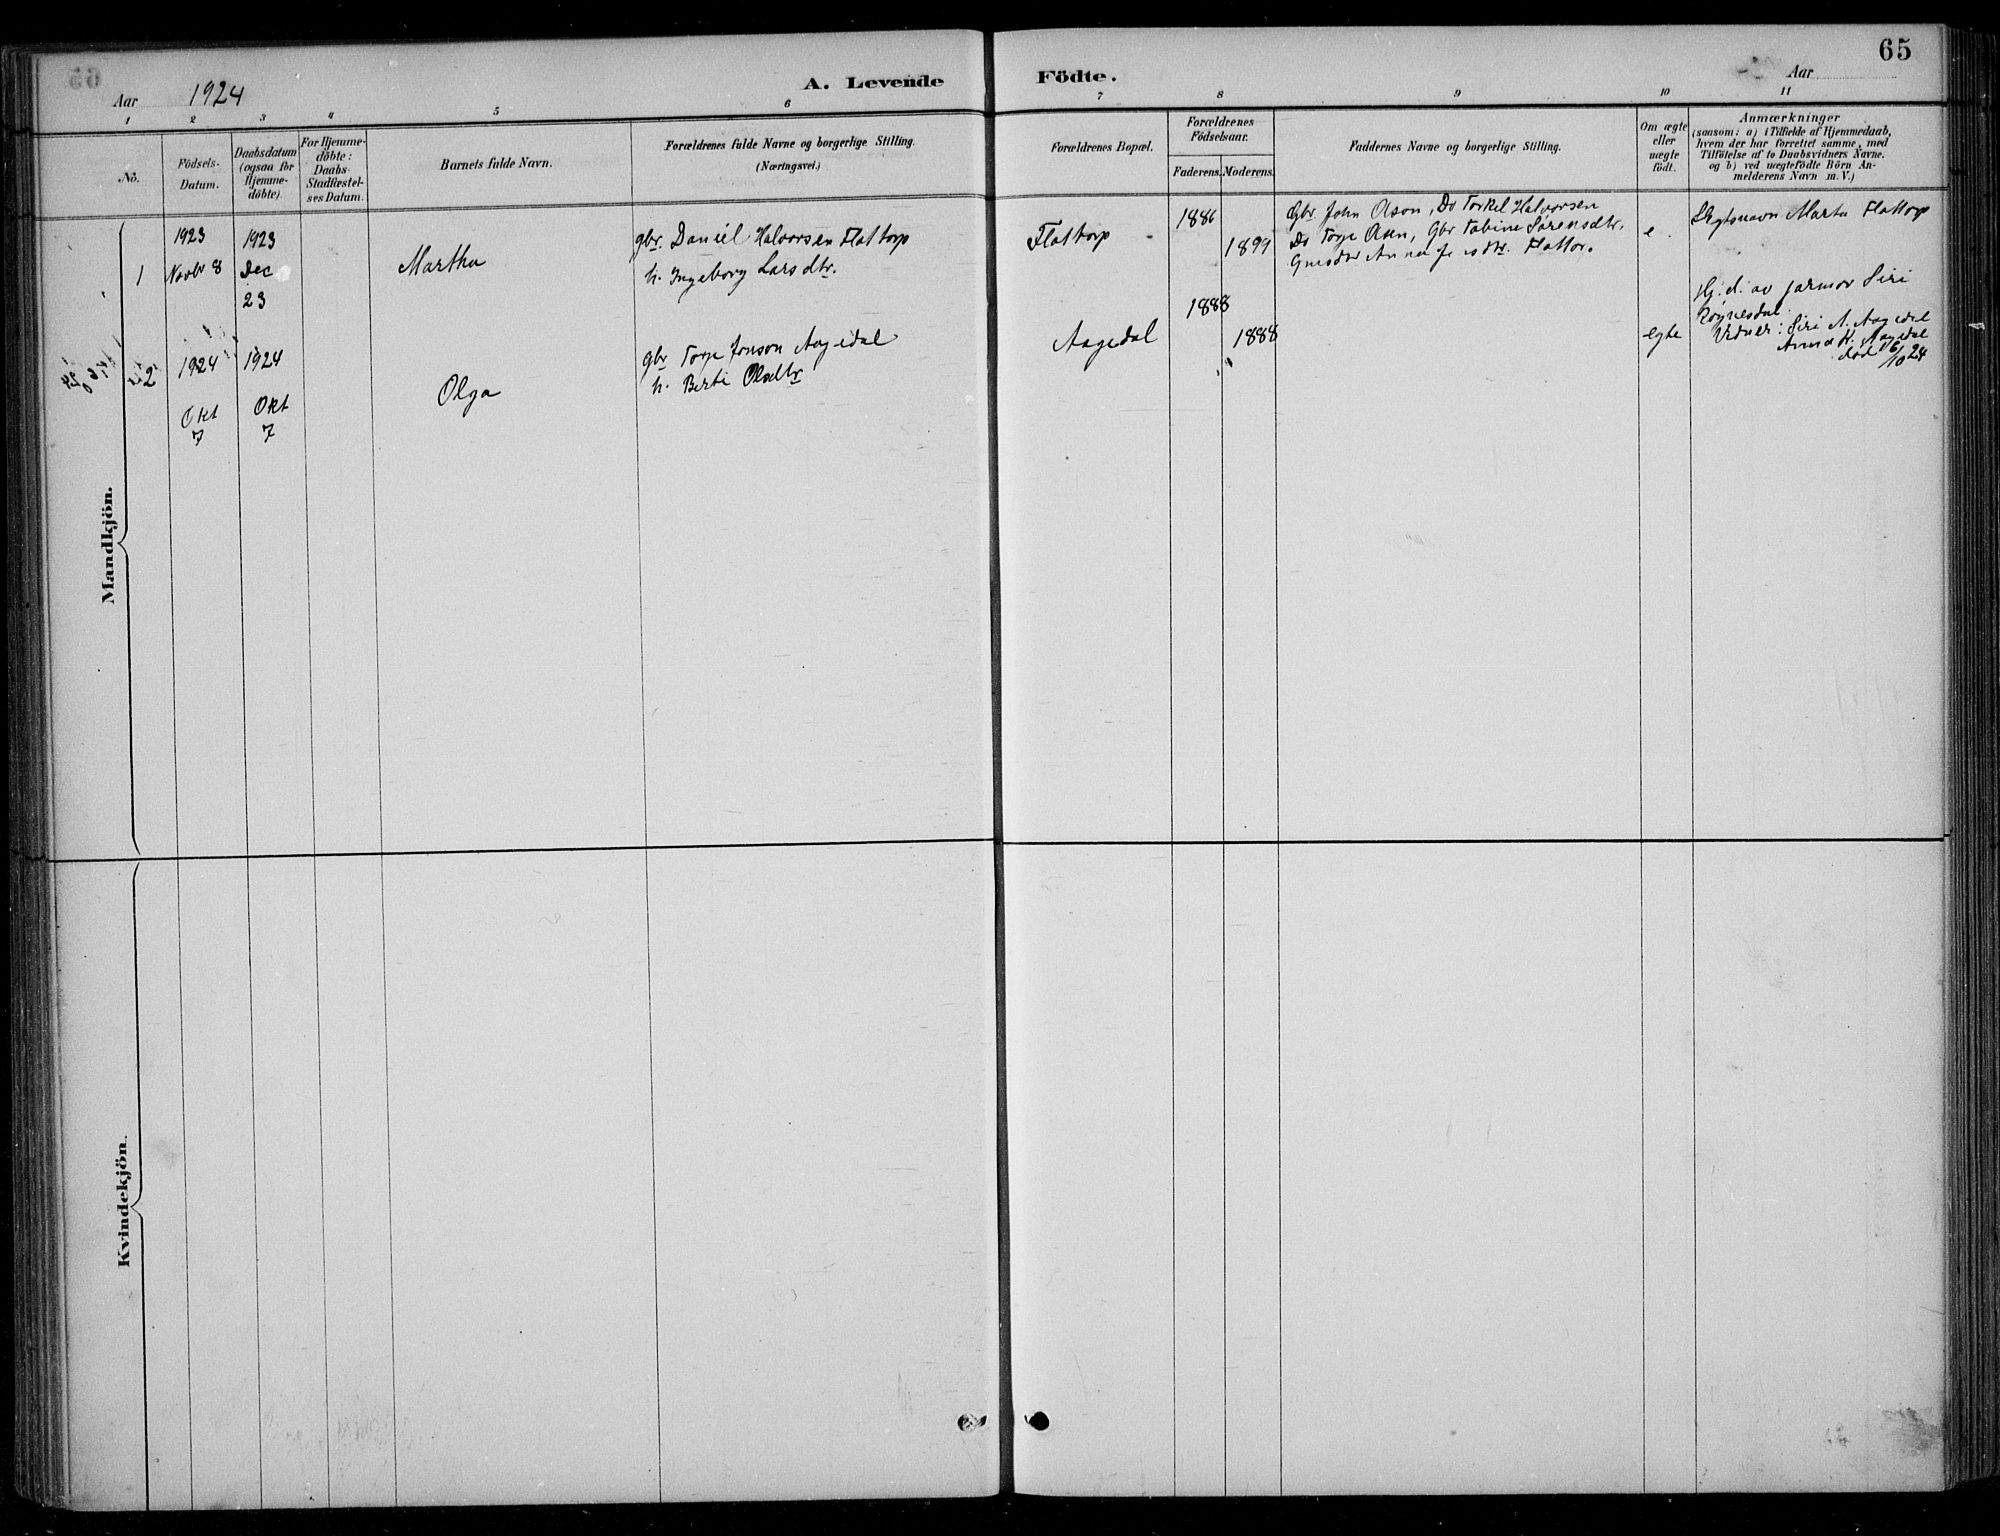 65
Aar 1924
A. Levende Födte.
Aar
1 2 3 4 5 6 7 8 9 10 11
No.
Födsels-
Datum.
Daabsdatum
(ogsaa för
Hjemme-
döbte).
For Hjemme-
döbte:
Daabs-
Stadfæstel-
ses Datum.
Barnets fulde Navn.
Forældrenes fulde Navne og borgerlige Stilling.
(Næringsvei.)
Forældrenes Bopæl.
Forældrenes
Födselsaar.
Faderens. Moderens.
Faddernes Navne og borgerlige Stilling.
Om ægte
eller
uægte
födt.
Anmærkninger
(saasom: a) i Tilfælde af Hjemmedaab,
hvem der har forrettet samme, med
Tilföielse af to Daabsvidners Navne.
og b) ved uægtefödte Börn An-
melderens Navn m. V.)
Mandkjön.
1
1923
Novbr 8
1923
Dec
23
Martha
gbr. Daniel Halvorsen Flottorp
h. Ingeborg Larsdtr.
Flottorp
1886
1899
Gbr John Ason, Do Torkel Halvorsen
Do Torje Asen, Gbr Tobine Sørensdtr.
Anna
e.
Slegtsnavn Marta Flottorp
2
1924
Okt
7
1924
Okt
7
Olga
gbr Torje Jonson Aagedal
h. Berte Olsdtr
Aagedal
1888
1888
egte
Hj. d. av jormor Siri
Røynesdal
Vidner: Siri A. Aagedal
Anna K. Aagedal
død 16/10 24
Kvindekjön.